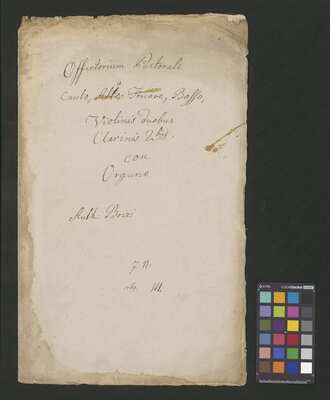 Offertorium Pastorale
Canto, Alto, Tenore, Basso,
Violinis duobus
Clarinis 2bus
con
Organo
Auth: Brixi
No. III.